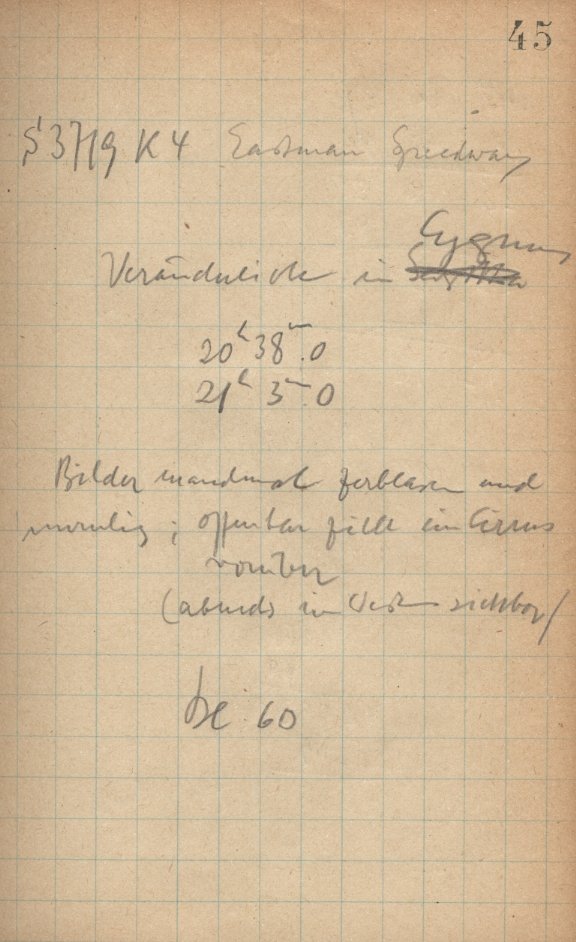 45
S 3719 K4 Eastman Speedway
Cygnus
Veränderliche in
20ʰ 38ᵐ.0
21ʰ 3ᵐ.0
Bilder manchmal zerblasen und
unruhig; offenbar zieht ein Cirrus
vorüber
(abends im West sichtbar)
60